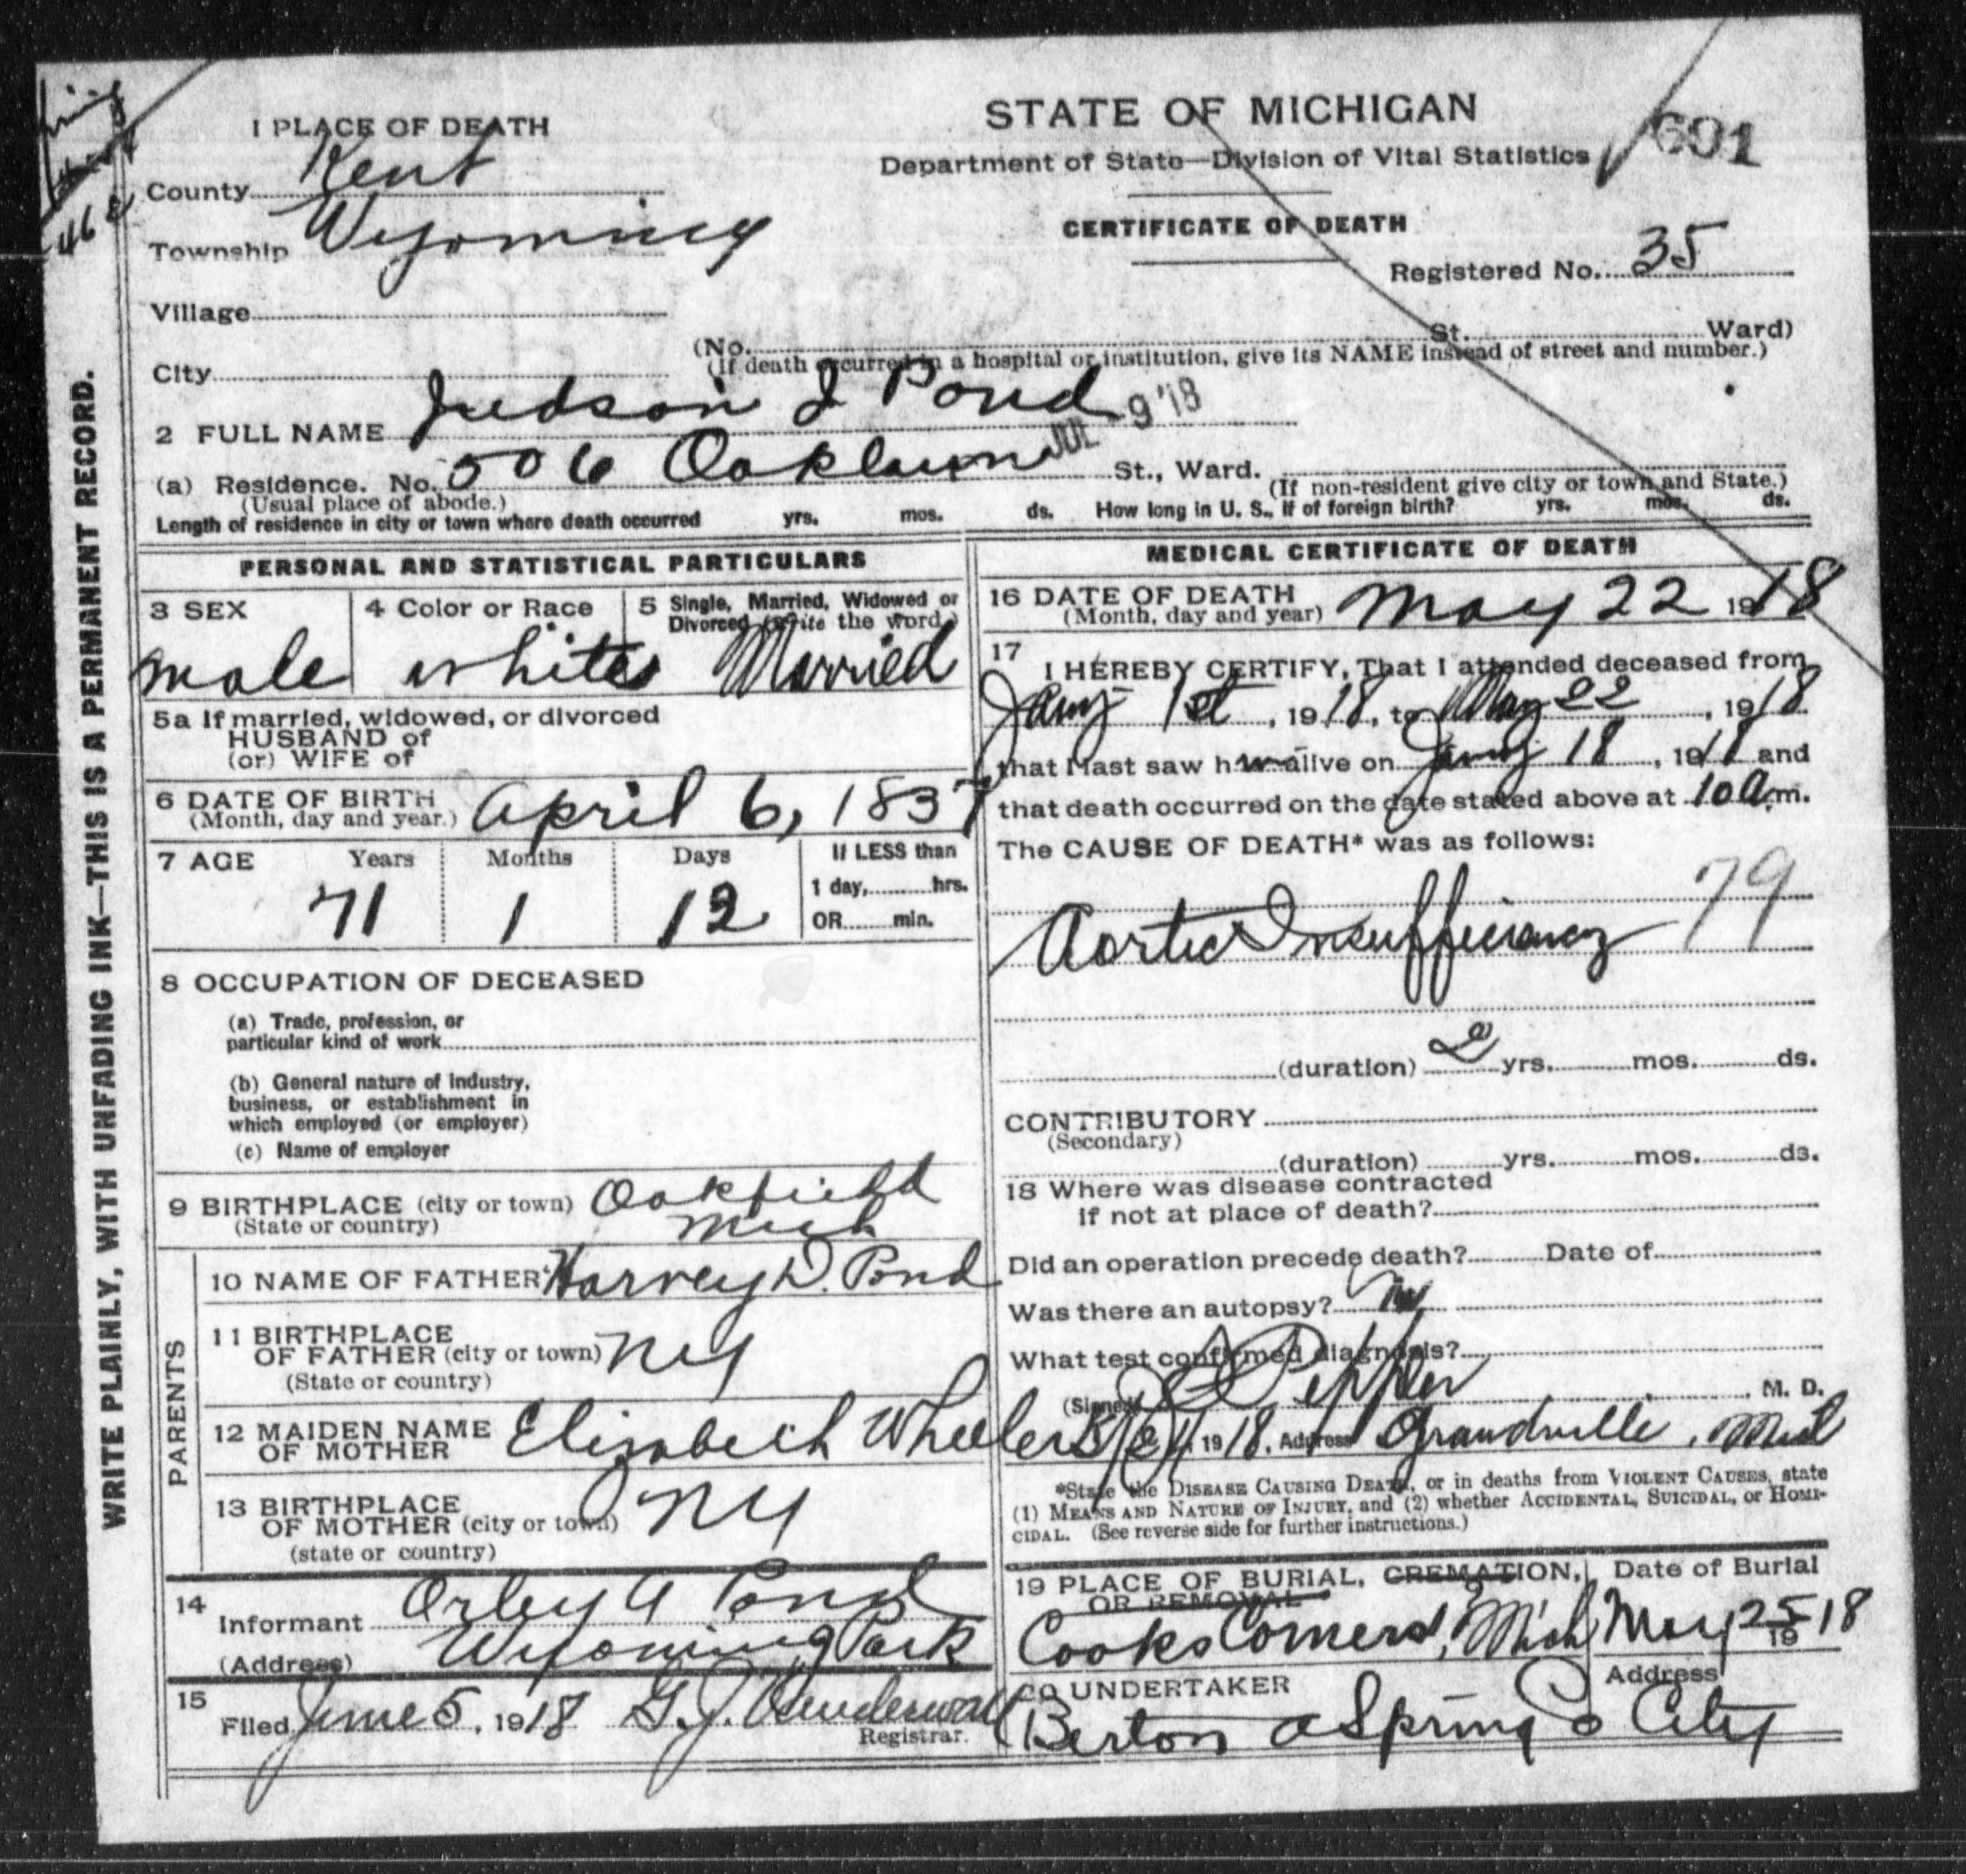 STATE OF MICHIGAN
Department of State—Division of Vital Statistics
691
CERTIFICATE OF DEATH
Registered No. 35
1 PLACE OF DEATH
County Kent
Township Wyoming
Village
City
(No. St. Ward)
(If death occurred in a hospital or institution, give its NAME instead of street and number.)
2 FULL NAME Judson J Pond
JUL 9 '18
(a) Residence. No. 506 Oaklawn St., Ward.
(Usual place of abode.) (If non-resident give city or town and State.)
Length of residence in city or town where death occurred yrs. mos. ds. How long in U. S., if of foreign birth? yrs. mos. ds.
WRITE PLAINLY, WITH UNFADING INK—THIS IS A PERMANENT RECORD.
PERSONAL AND STATISTICAL PARTICULARS
3 SEX 4 Color or Race 5 Single, Married, Widowed or
Divorced (write the word.)
male white Married
5a If married, widowed, or divorced
HUSBAND of
(or) WIFE of
6 DATE OF BIRTH April 6, 1837
(Month, day and year.)
7 AGE Years Months Days If LESS than
1 day, hrs.
71 1 12 OR min.
8 OCCUPATION OF DECEASED
(a) Trade, profession, or
particular kind of work
(b) General nature of industry,
business, or establishment in
which employed (or employer)
(c) Name of employer
9 BIRTHPLACE (city or town) Oakfield
(State or country) Mich
PARENTS
10 NAME OF FATHER Harvey D. Pond
11 BIRTHPLACE
OF FATHER (city or town) NY
(State or country)
12 MAIDEN NAME
OF MOTHER Elizabeth Wheeler
13 BIRTHPLACE
OF MOTHER (city or town) NY
(state or country)
14
Informant Orley A Pond
(Address) Wyoming Park
15
Filed June 5, 1918 G. J.
Registrar.
MEDICAL CERTIFICATE OF DEATH
16 DATE OF DEATH May 22 1918
(Month, day and year)
17
I HEREBY CERTIFY, That I attended deceased from
Jany 1st, 1918, to May 22, 1918
that I last saw him alive on Jany 18, 1918 and
that death occurred on the date stated above at 10 a.m.
The CAUSE OF DEATH* was as follows:
79
Aortic Insufficiency
(duration) 2 yrs. mos. ds.
CONTRIBUTORY
(Secondary)
(duration) yrs. mos. ds.
18 Where was disease contracted
if not at place of death?
Did an operation precede death? Date of
Was there an autopsy? No
What test confirmed diagnosis?
(Signed) Peppler M. D.
1918, Address Grandville, Mich
*State the DISEASE CAUSING DEATH, or in deaths from VIOLENT CAUSES, state
(1) MEANS AND NATURE OF INJURY, and (2) whether ACCIDENTAL, SUICIDAL, or HOMI-
CIDAL. (See reverse side for further instructions.)
19 PLACE OF BURIAL, CREMATION, Date of Burial
OR REMOVAL
Cooks Corners, Mich May 25 1918
20 UNDERTAKER Address
Berton A Spring City